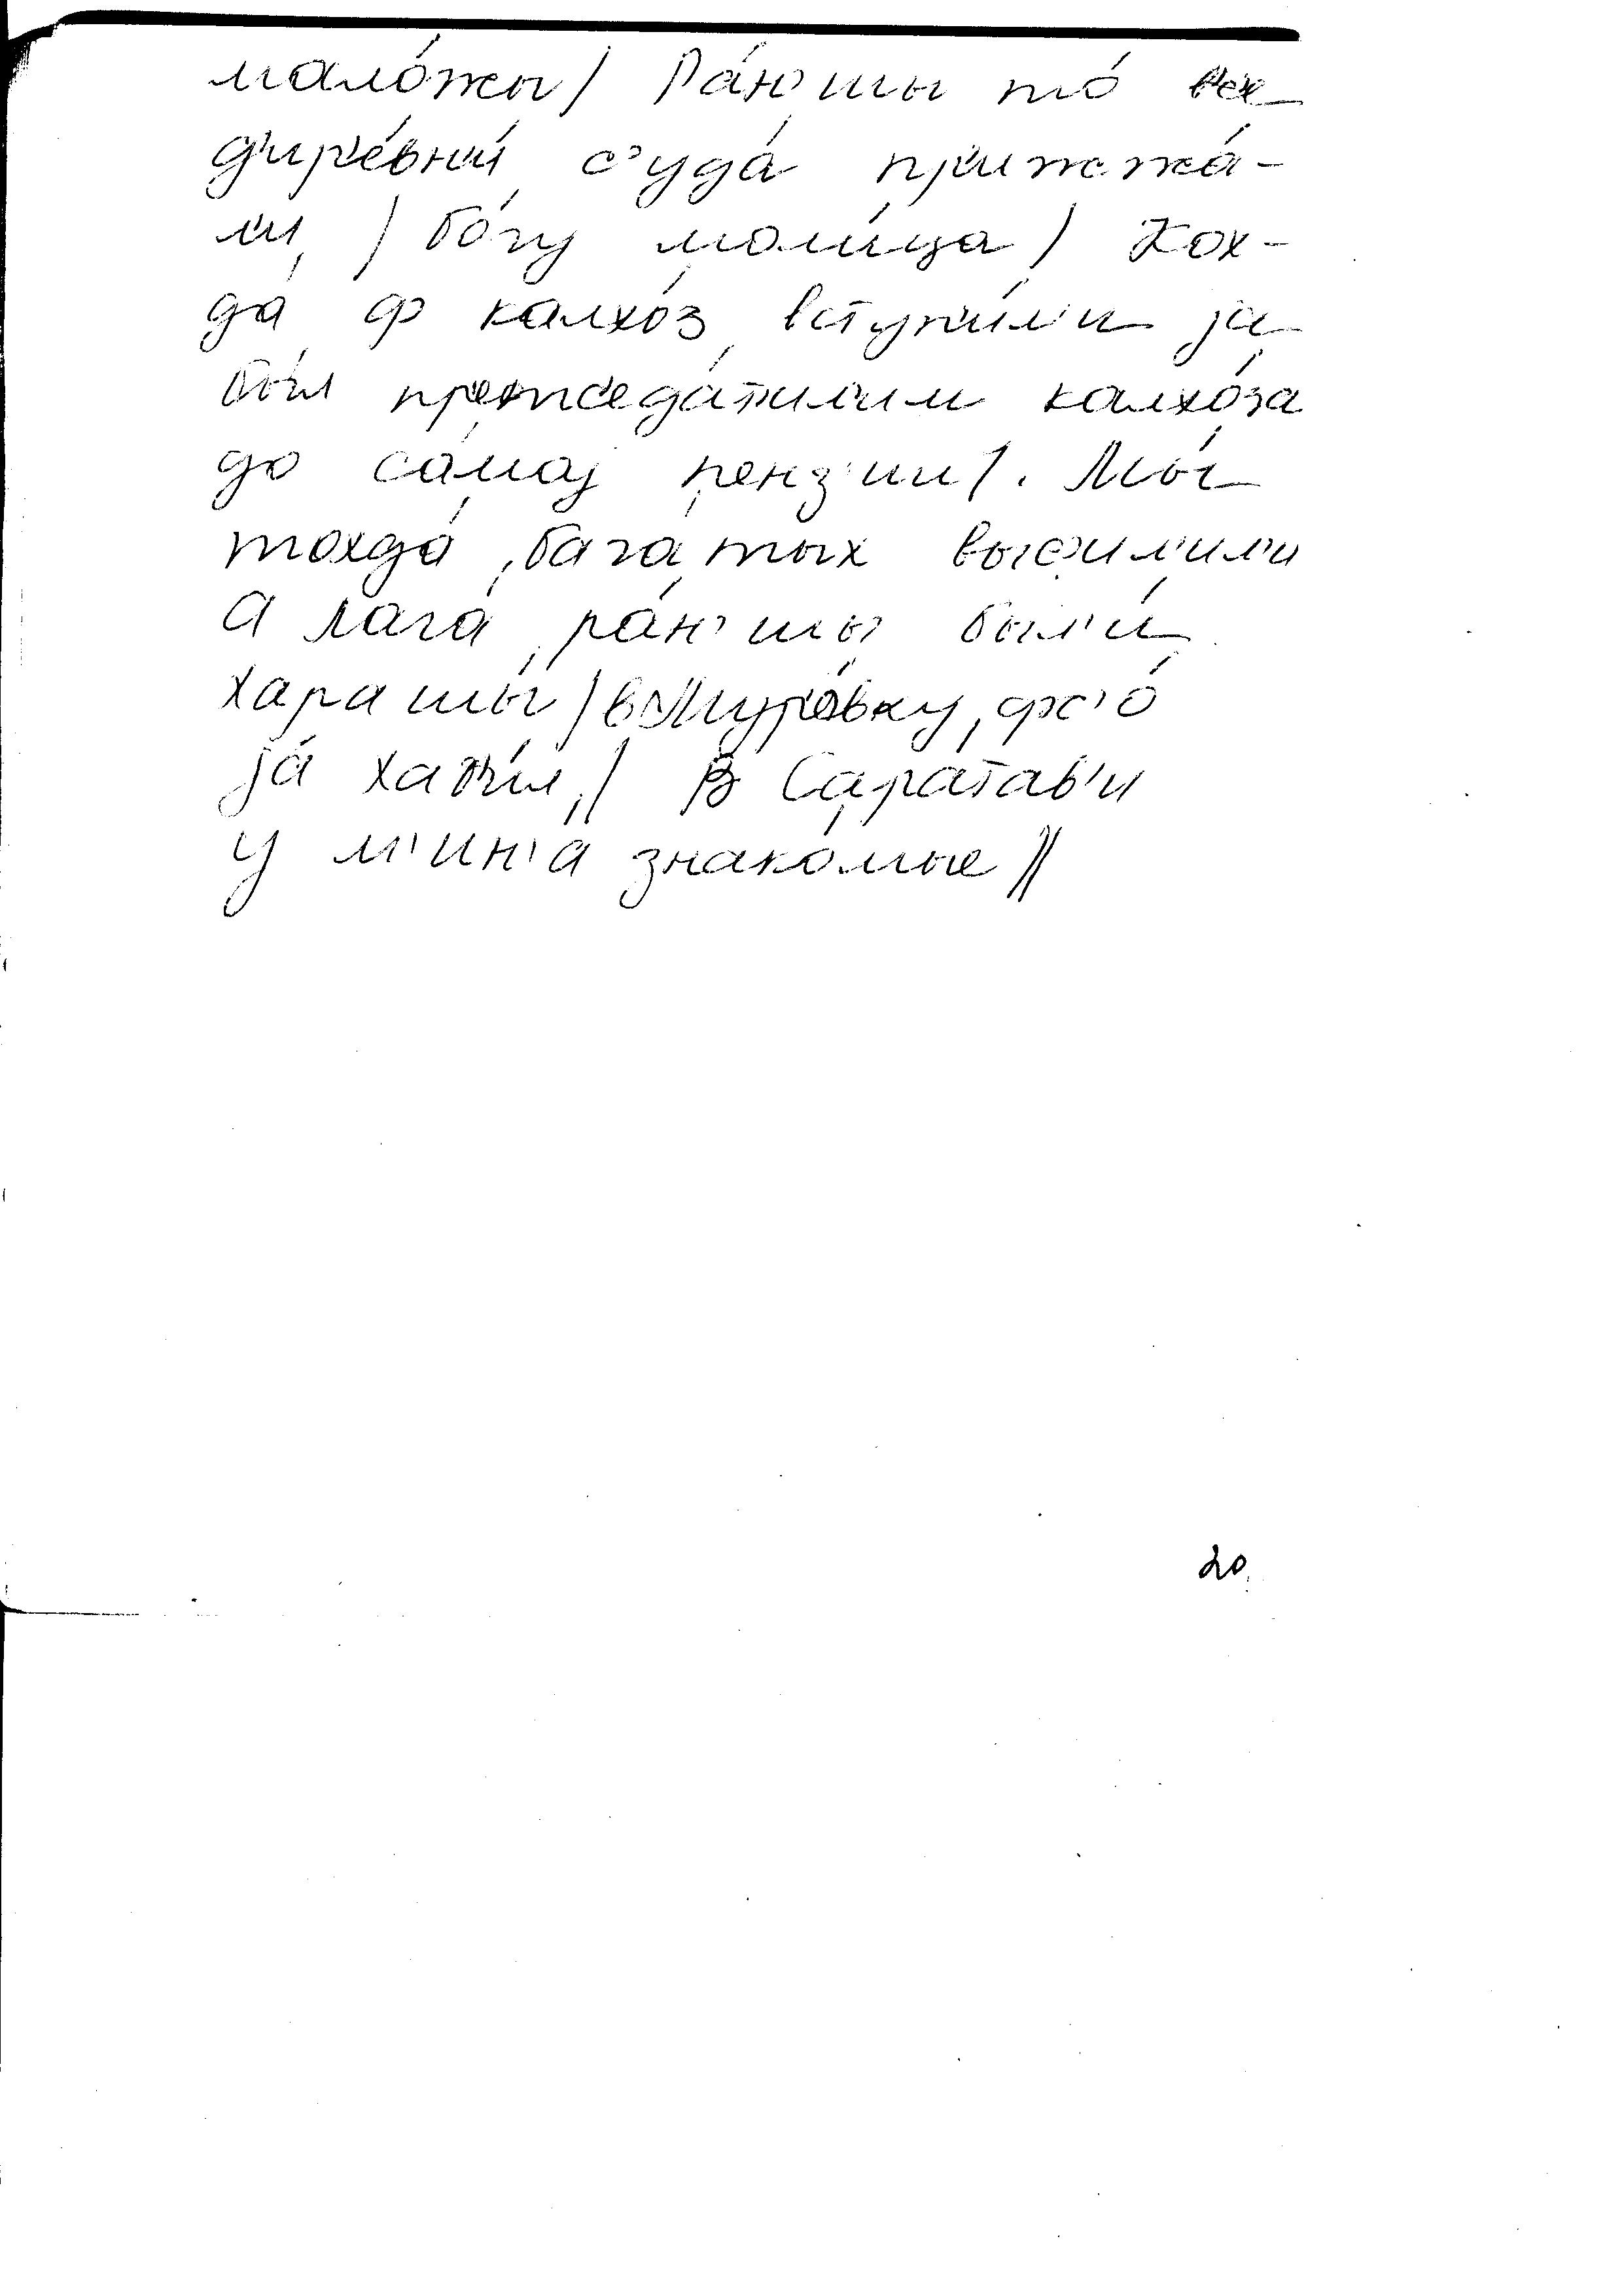 мало́жы / Ра́н'шы то́ в'ех
д'ир'е́вн'и́ с'уда́ пр'ижжа́-
л'и, / бо́гу мол'и́ца / Кох-
да́ ф калхо́з вступ'и́л'и ја
бы́л пр'етседа́т'ил'им калхо́за
до са́мај пе́нз'ии /. Мы́
тохда́ бага́тых высил'ил'и
А лага́ ра́н'шы был'и́
харашы́ / в Муро́вку, фс'о́
ја́ хад'и́л, / В Сара́тав'и
у м'ин'а знако́мые //
20.